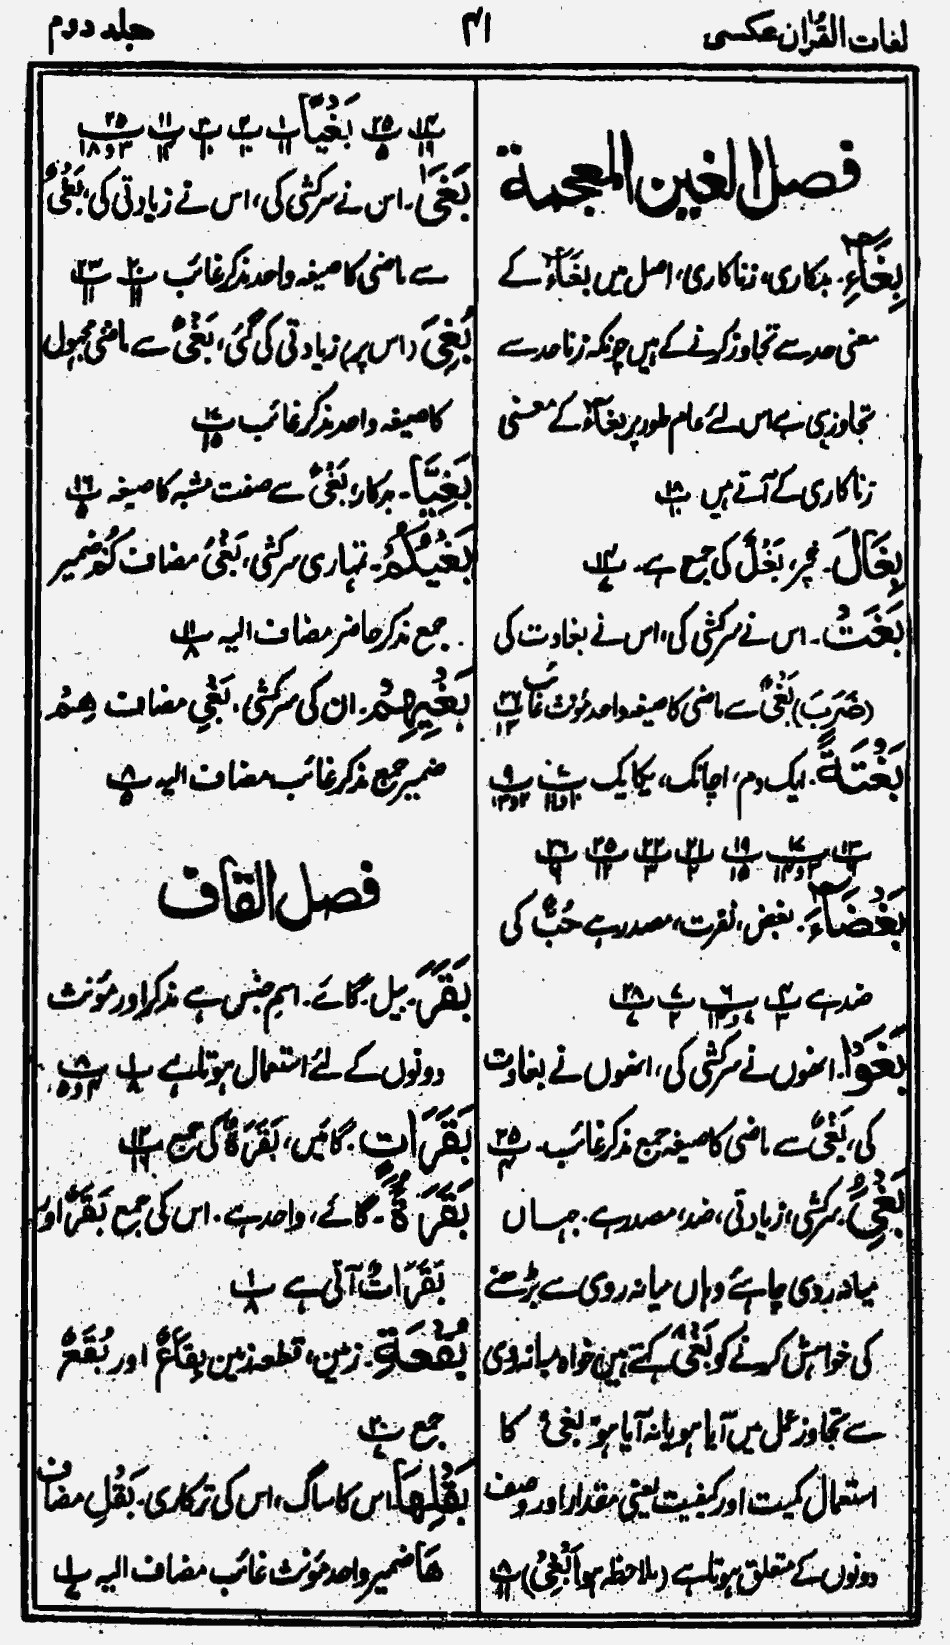 لغات القرآن عکسی
۴۱
جلد دوم
فصل الغین المعجمة
بِغَآءِ۔ بدکاری، زناکاری، اصل میں بِغَآءٌ کے
معنی حد سے تجاوز کرنے کے ہیں چونکہ زنا حد سے
تجاوز ہی ہے اس لئے عام طور پر بغاءٌ کے معنی
زناکاری کے آتے ہیں پ۱۸ ۱۰
بِغَالَ۔ خچر، بَغْلٌ کی جمع ہے۔ پ۱۴ ۷
بَغَتْ۔ اس نے سرکشی کی، اس نے بغاوت کی
(ضَرَبَ) بَغْیٌ سے ماضی کا صیغہ واحد مؤنث غائب پ۲۶ ۱۳
بَغْتَةً۔ ایک دم، اچانک، یکایک پ۷ ۱۰و۱۱ پ۹ ۱۳و۲
پ۱۳ ۶ پ۱۷ ۲و۱۴ پ۱۹ ۱۵ پ۲۱ ۲ پ۲۲ ۳ پ۲۵ ۱۲ پ۲۶ ۶
بَغْضَآءَ۔ بغض، نفرت، مصدر ہے حُبٌّ کی
ضد ہے پ۴ ۳ پ۶ ۷و۱۳ پ۷ ۲ پ۲۸ ۷
بَغَوْا۔ انھوں نے سرکشی کی، انھوں نے بغاوت
کی، بَغْیٌ سے ماضی کا صیغہ جمع مذکر غائب۔ پ۲۵ ۴
بَغْیَ۔ سرکشی، زیادتی، ضد، مصدر ہے۔ جہاں
میانہ روی چاہئے وہاں میانہ روی سے بڑھنے
کی خواہش کرنے کو بَغْیٌ کہتے ہیں خواہ میانہ روی
سے تجاوز عمل میں آیا ہو یا نہ آیا ہو، بغیٌ کا
استعمال کمیت اور کیفیت یعنی مقدار اور وصف
دونوں کے متعلق ہوتا ہے (ملاحظہ ہو اَلْبَغْیُ) پ۸ ۱۱
پ۱۴ ۱۹ پ۲۵ ۵ بَغْیًا پ۱ ۱۱ پ۲ ۱۰ پ۳ ۱۰ پ۱۱ ۱۴ پ۲۵ ۳و۱۸
بَغٰی۔ اس نے سرکشی کی، اس نے زیادتی کی، بَغْیٌ
سے ماضی کا صیغہ واحد مذکر غائب پ۲۰ ۱۱ پ۲۳ ۱۱
بُغِیَ (اس پر) زیادتی کی گئی، بَغْیٌ سے ماضی مجہول
کا صیغہ واحد مذکر غائب پ۱۷ ۱۵
بَغِیًّا۔ بدکار، بَغْیٌ سے صفت مشبہ کا صیغہ پ۱۶ ۵
بَغْیُکُمْ۔ تمہاری سرکشی، بَغْیُ مضاف کُمْ ضمیر
جمع مذکر حاضر مضاف الیہ پ۱۱ ۸
بَغْیِهِمْ۔ ان کی سرکشی، بَغْیِ مضاف هِمْ
ضمیر جمع مذکر غائب مضاف الیہ پ۸ ۵
فصل القاف
بَقَرَ۔ بیل۔ گائے۔ اسمِ جنس ہے مذکر اور مؤنث
دونوں کے لئے استعمال ہوتا ہے پ۱ ۸ پ۸ ۴و۵
بَقَرَاتٍ۔ گائیں، بَقَرَةٌ کی جمع پ۱۲ ۱۶
بَقَرَةٌ۔ گائے، واحد ہے۔ اس کی جمع بَقَرٌ اور
بَقَرَاتٌ آتی ہے پ۱ ۸
بُقْعَةِ۔ زمین، قطعہ زمین بِقَاعٌ اور بُقَعٌ
جمع پ۲۰ ۷
بَقْلِهَا۔ اس کا ساگ، اس کی ترکاری۔ بَقْلِ مضاف
هَا ضمیر واحد مؤنث غائب مضاف الیہ پ۱ ۷